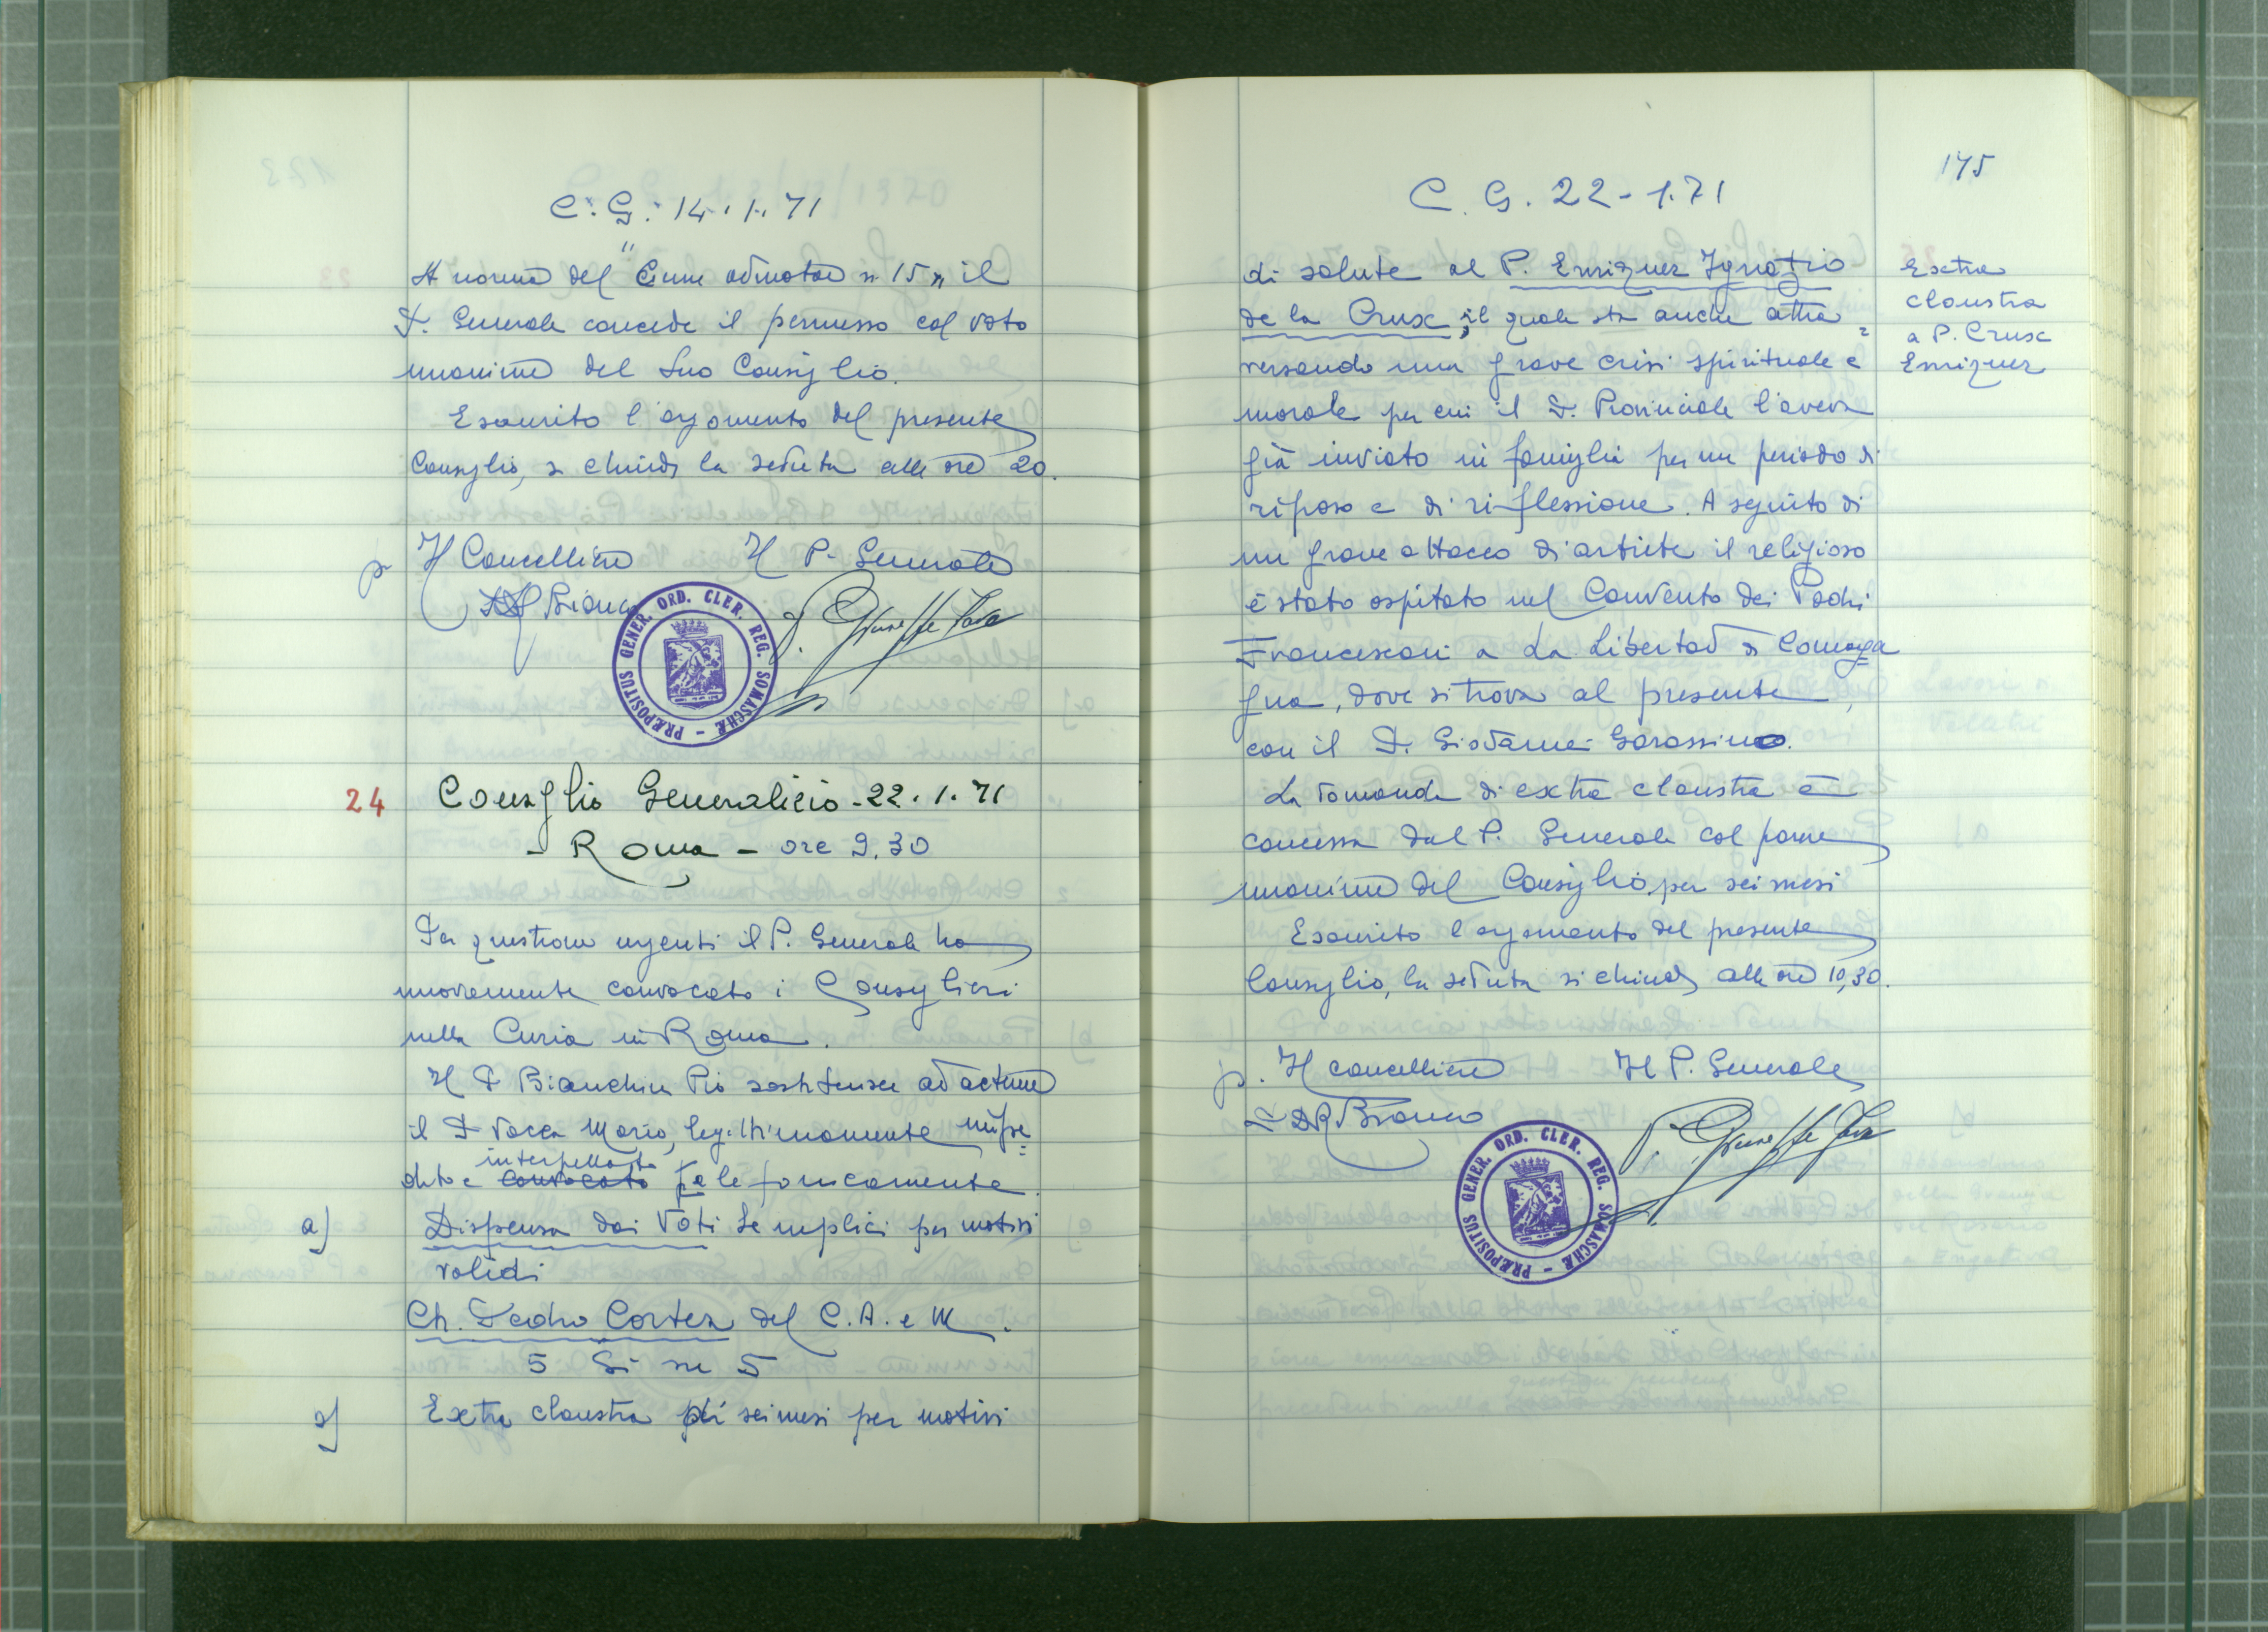 C. G. 14.1.71
A norma del "Cum admotae n. 15" il
P. Generale concede il permesso col voto
unanime del suo Consiglio.
Esaurito l'argomento del presente
Consiglio, si chiude la seduta alle ore 20.
p. Il Cancelliere Il P. Generale
P. Giuseppe Fava
PRÆPOSITUS GENER. ORD. CLER. REG. SOMASCHÆ
24 Consiglio Generalizio - 22.1.71
- Roma - ore 9.30
Per questioni urgenti il P. Generale ha
nuovamente convocato i Consiglieri
nella Curia in Roma.
Il P. Bianchini Pio sostituisce ad actum
il P. Vacca Mario, legittimamente impe=
dito e interpellato convocato telefonicamente.
a) Dispensa dai Voti Semplici per motivi
validi
Ch. Pedro Cortez del C.A. e M.
5 Si su 5
Extra claustra di sei mesi per motivi
175
C. G. 22-1.71
di salute al P. Enriquez Ignazio
de la Crux, il quale sta anche attra=
versando una grave crisi spirituale e
morale per cui il P. Provinciale l'aveva
già inviato in famiglia per un periodo di
riposo e di riflessione. A seguito di
un grave attacco di artrite il religioso
è stato ospitato nel Convento dei Padri
Francescani a La Libertad di Comaya
gua, dove si trova al presente,
con il P. Giovanni Garassino.
La domanda di extra claustra è
concessa dal P. Generale col parere
unanime del Consiglio, per sei mesi
Esaurito l'argomento del presente
Consiglio, la seduta si chiude alle ore 10,30.
p. Il cancelliere Il P. Generale
P. Giuseppe Fava
PRÆPOSITUS GENER. ORD. CLER. REG. SOMASCHÆ
Extra
claustra
a P. Crux
Enriquez